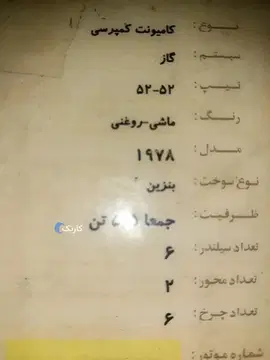 نوع : کامیونت کمپرسی
سیستم : گاز
تیپ : ۵۲-۵۲
رنگ : ماشی-روغنی
مدل : ۱۹۷۸
نوع سوخت : بنزین
ظرفیت : جمعا تن
کارنکا
تعداد سیلندر : ۶
تعداد محور : ۲
تعداد چرخ : ۶
شماره موتور :